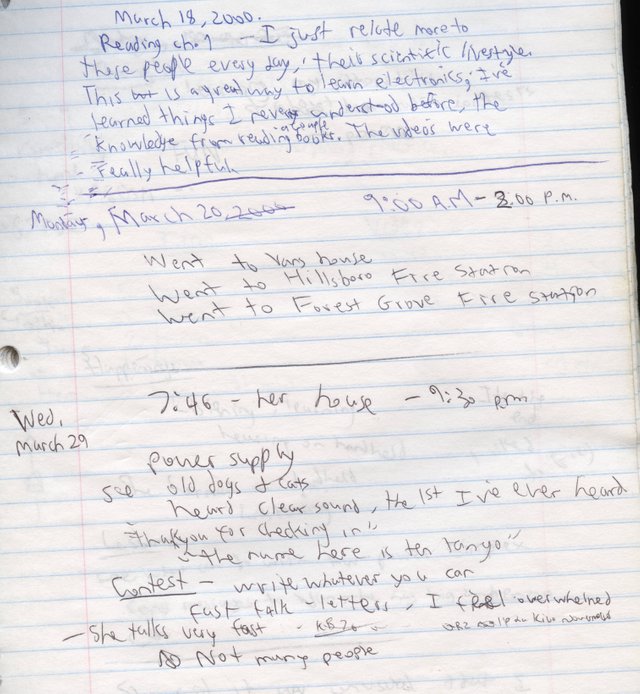 March 18, 2000.
Reading ch. 1 - I just relate more to
these people every day, their scientific lifestyle.
This is a great way to learn electronics, I've
learned things I never understood before, the
knowledge from reading a couple books. The videos were
really helpful
Monday, March 20, 2000 9:00 AM - 2:00 P.M.
Went to Vans house
Went to Hillsboro Fire Station
Went to Forest Grove Fire Station
7:46 - her house - 9:30 pm
Wed,
March 29
power supply
see old dogs & cats
heard clear sound, the 1st I've ever heard
"Thank you for checking in"
"The name here is ten tango"
Contest - write whatever you can
fast talk - letters, I feel overwhelmed
- She talks very fast -
Not many people